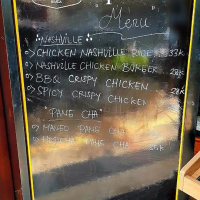 "Menu"
"NASHVILLE"
CHICKEN NASHVILLE RICE 33K
NASHVILLE CHICKEN BURGER 28K
BBQ CRISPY CHICKEN 28K
SPICY CRISPY CHICKEN
"PANG CHA"
MANGO PANG CHA
PANG CHA 35K